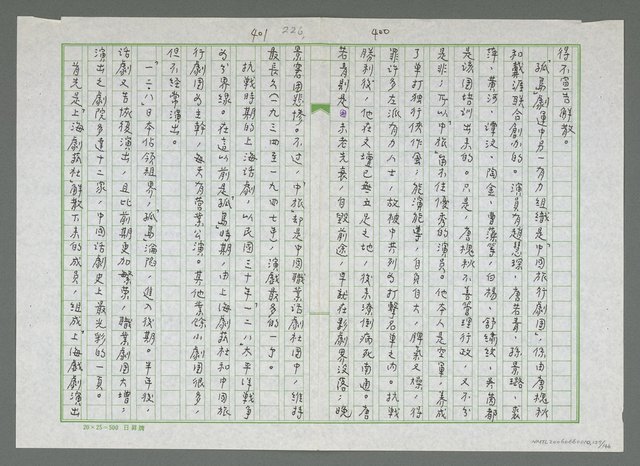 400
得不宣告解散。
「孤島」劇運中另一有力組織是「中國旅行劇團」，係由唐槐秋
和戴涯联合創办的。演員有趙慧琛、唐若青、孫景璐、裘
萍、黃河、譚汶、陶金、曹藻等，白楊、舒綉紋、吳茵都
是該團培訓出來的。只是，唐槐秋不善管理行政，又不分
是非，所以「中旅」留不住優秀的演員。他本人是空軍，养成
了單打独行俠作風，能演能導，自負自大，脾氣又燥，得
罪许多左派有力人士，故被中共列為打擊名單之內。抗战
勝利後，他在文壇已無立足之地，後來潦倒病死南通。唐
若青則是未老先衰，自毀前途，早就在影劇界没落，晚
401 226
景窘困悲慘。不过，「中旅」却是中國職業话劇社團中，維持
最長久（一九三四至一九四七年），演戲最多的一个。
抗戰時期的上海话劇，以民國三十年「一二八」太平洋戰爭
為分界線。在這以前是「孤島」時期，由上海劇藝社和中國旅
行劇團為主幹，每天有營業公演。其他業餘小劇團很多，
但不經常演出。
「一二八」日本佔領租界，「孤島」淪陷，進入後期。半年後，
话劇又苦恢復演出，且比前期更加繁荣，職業劇團大增，
演出之劇院多達十二家，中國话劇史上最光彩的一頁。
首先是「上海劇藝社」解散下來的成員，組成「上海戲劇演出
20×25=500 日昇牌